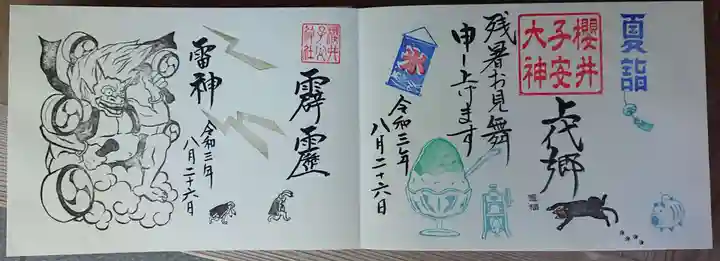 夏詣
櫻井
子安
大神
上代郷
残暑お見舞
申し上げます
氷
令和三年
八月二十六日
櫻井
子安
神社
霹靂
雷神
令和三年
八月二十六日